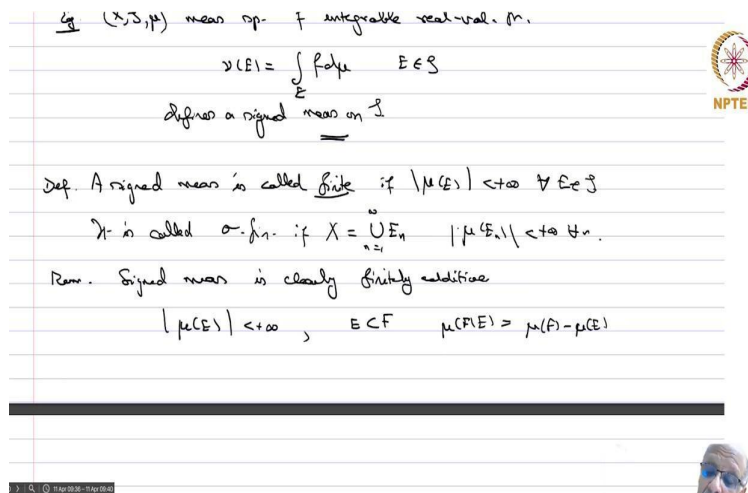 Eg (X, S, μ) meas sp. f integrable real-val. fn.
ν(E) = ∫_E f dμ E ∈ S
defines a signed meas on S
NPTE
Def. A signed meas is called finite if |μ(E)| < +∞ ∀ E ∈ S
It is called σ-fin. if X = ∪_{n=1}^∞ E_n |μ(E_n)| < +∞ ∀n.
Rem. Signed meas is clearly finitely additive
|μ(E)| < +∞ , E ⊂ F μ(F\E) = μ(F) - μ(E)
11 Apr 09:36 - 11 Apr 09:40